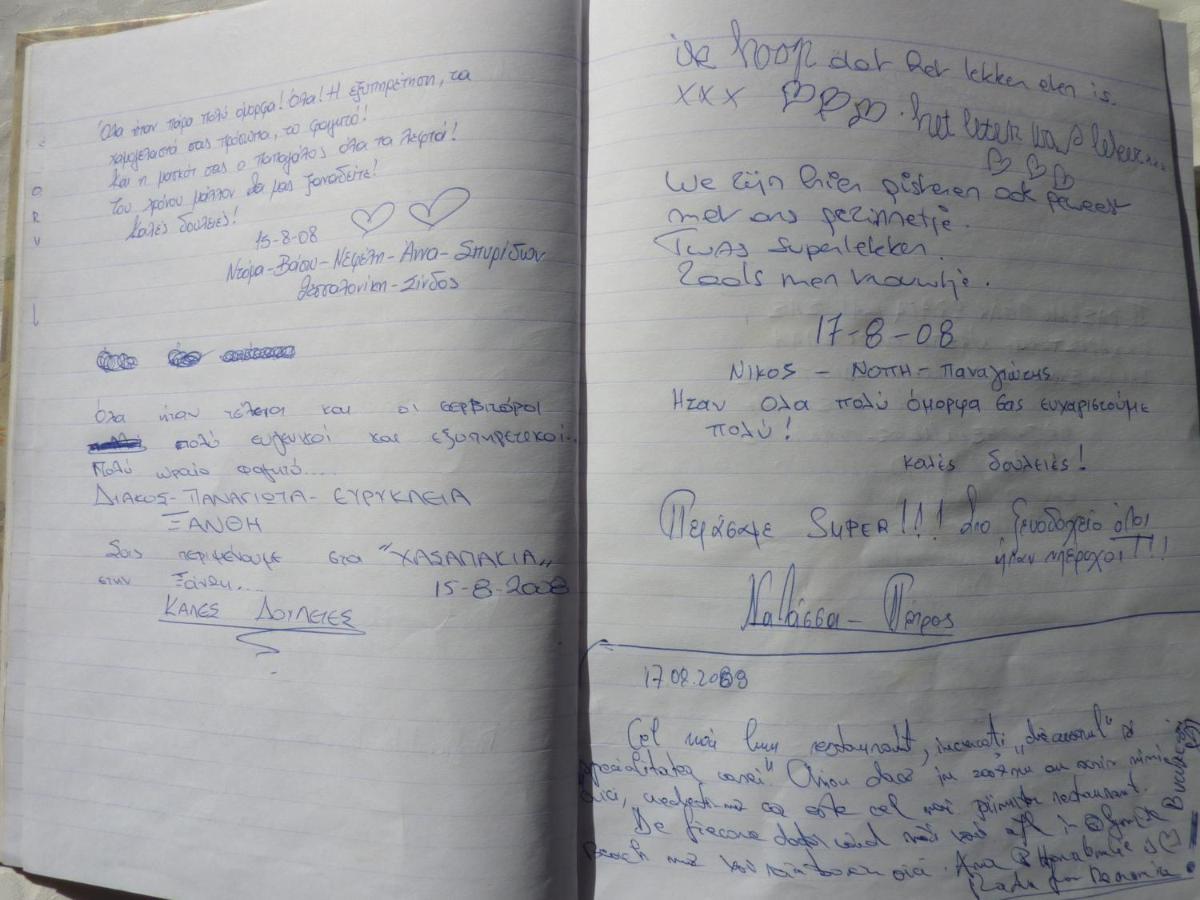 Όλα ήταν πάρα πολύ όμορφα! Όλα! Η εξυπηρέτηση, τα
χαμογελαστά σας πρόσωπα, το φαγητό!
Και η μασκότ σας ο παπαγάλος όλα τα λεφτά!
Του χρόνου μάλλον θα μας ξαναδείτε!
Καλές δουλειές!
15-8-08
Ντόρα-Βάσω-Νεφέλη-Άννα-Σπυρίδων
Θεσσαλονίκη-Σίνδος
Όλα ήταν τέλεια και οι σερβιτόροι
πολύ ευγενικοί και εξυπηρετικοί..
Πολύ ωραίο φαγητό....
ΔΙΑΚΟΣ-ΠΑΝΑΓΙΩΤΑ-ΕΥΡΥΚΛΕΙΑ
ΞΑΝΘΗ
Σας περιμένουμε στα "ΧΑΣΑΠΑΚΙΑ"
στην Ξάνθη.... 15-8-2008
ΚΑΛΕΣ ΔΟΥΛΕΙΕΣ
ik hoop dat het lekker eten is.
xxx het eten was
We zijn hier gisteren ook geweest
met ons gezinnetje.
Twas superlekker.
Zoals men vrouwtje.
17-8-08
ΝΙΚΟΣ - ΝΟΠΗ - Παναγιώτης
Ηταν όλα πολύ όμορφα σας ευχαριστούμε
πολύ!
καλές δουλειές!
Περάσαμε SUPER!!! Στο ξενοδοχείο όλοι
ήταν υπέροχοι!!!
Νατάσσα - Πέτρος
Cel mai bun restaurant, incercati
specialitatea casei" dacă în
aici, că este cel mai restaurant.
De fiecare dată când
Beach Ana
din Romania